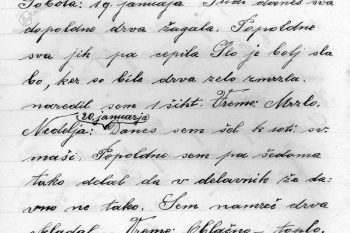 Sobota: 19. januarja Tudi danes sva
dopoldne drva žagala. Popoldne
sva jih pa cepila Šlo je bolj sla
bo, ker so bila drva zelo zmrzla.
naredil sem 1 šiht. Vreme: Mrzlo.
20. januarja
Nedelja: Danes sem šel k sv.
maši. Popoldne sem pa šedoma
tako delal da v delavnik že da-
vno ne tako. Sem namreč drva
skladal. Vreme: Oblačno - toplo.